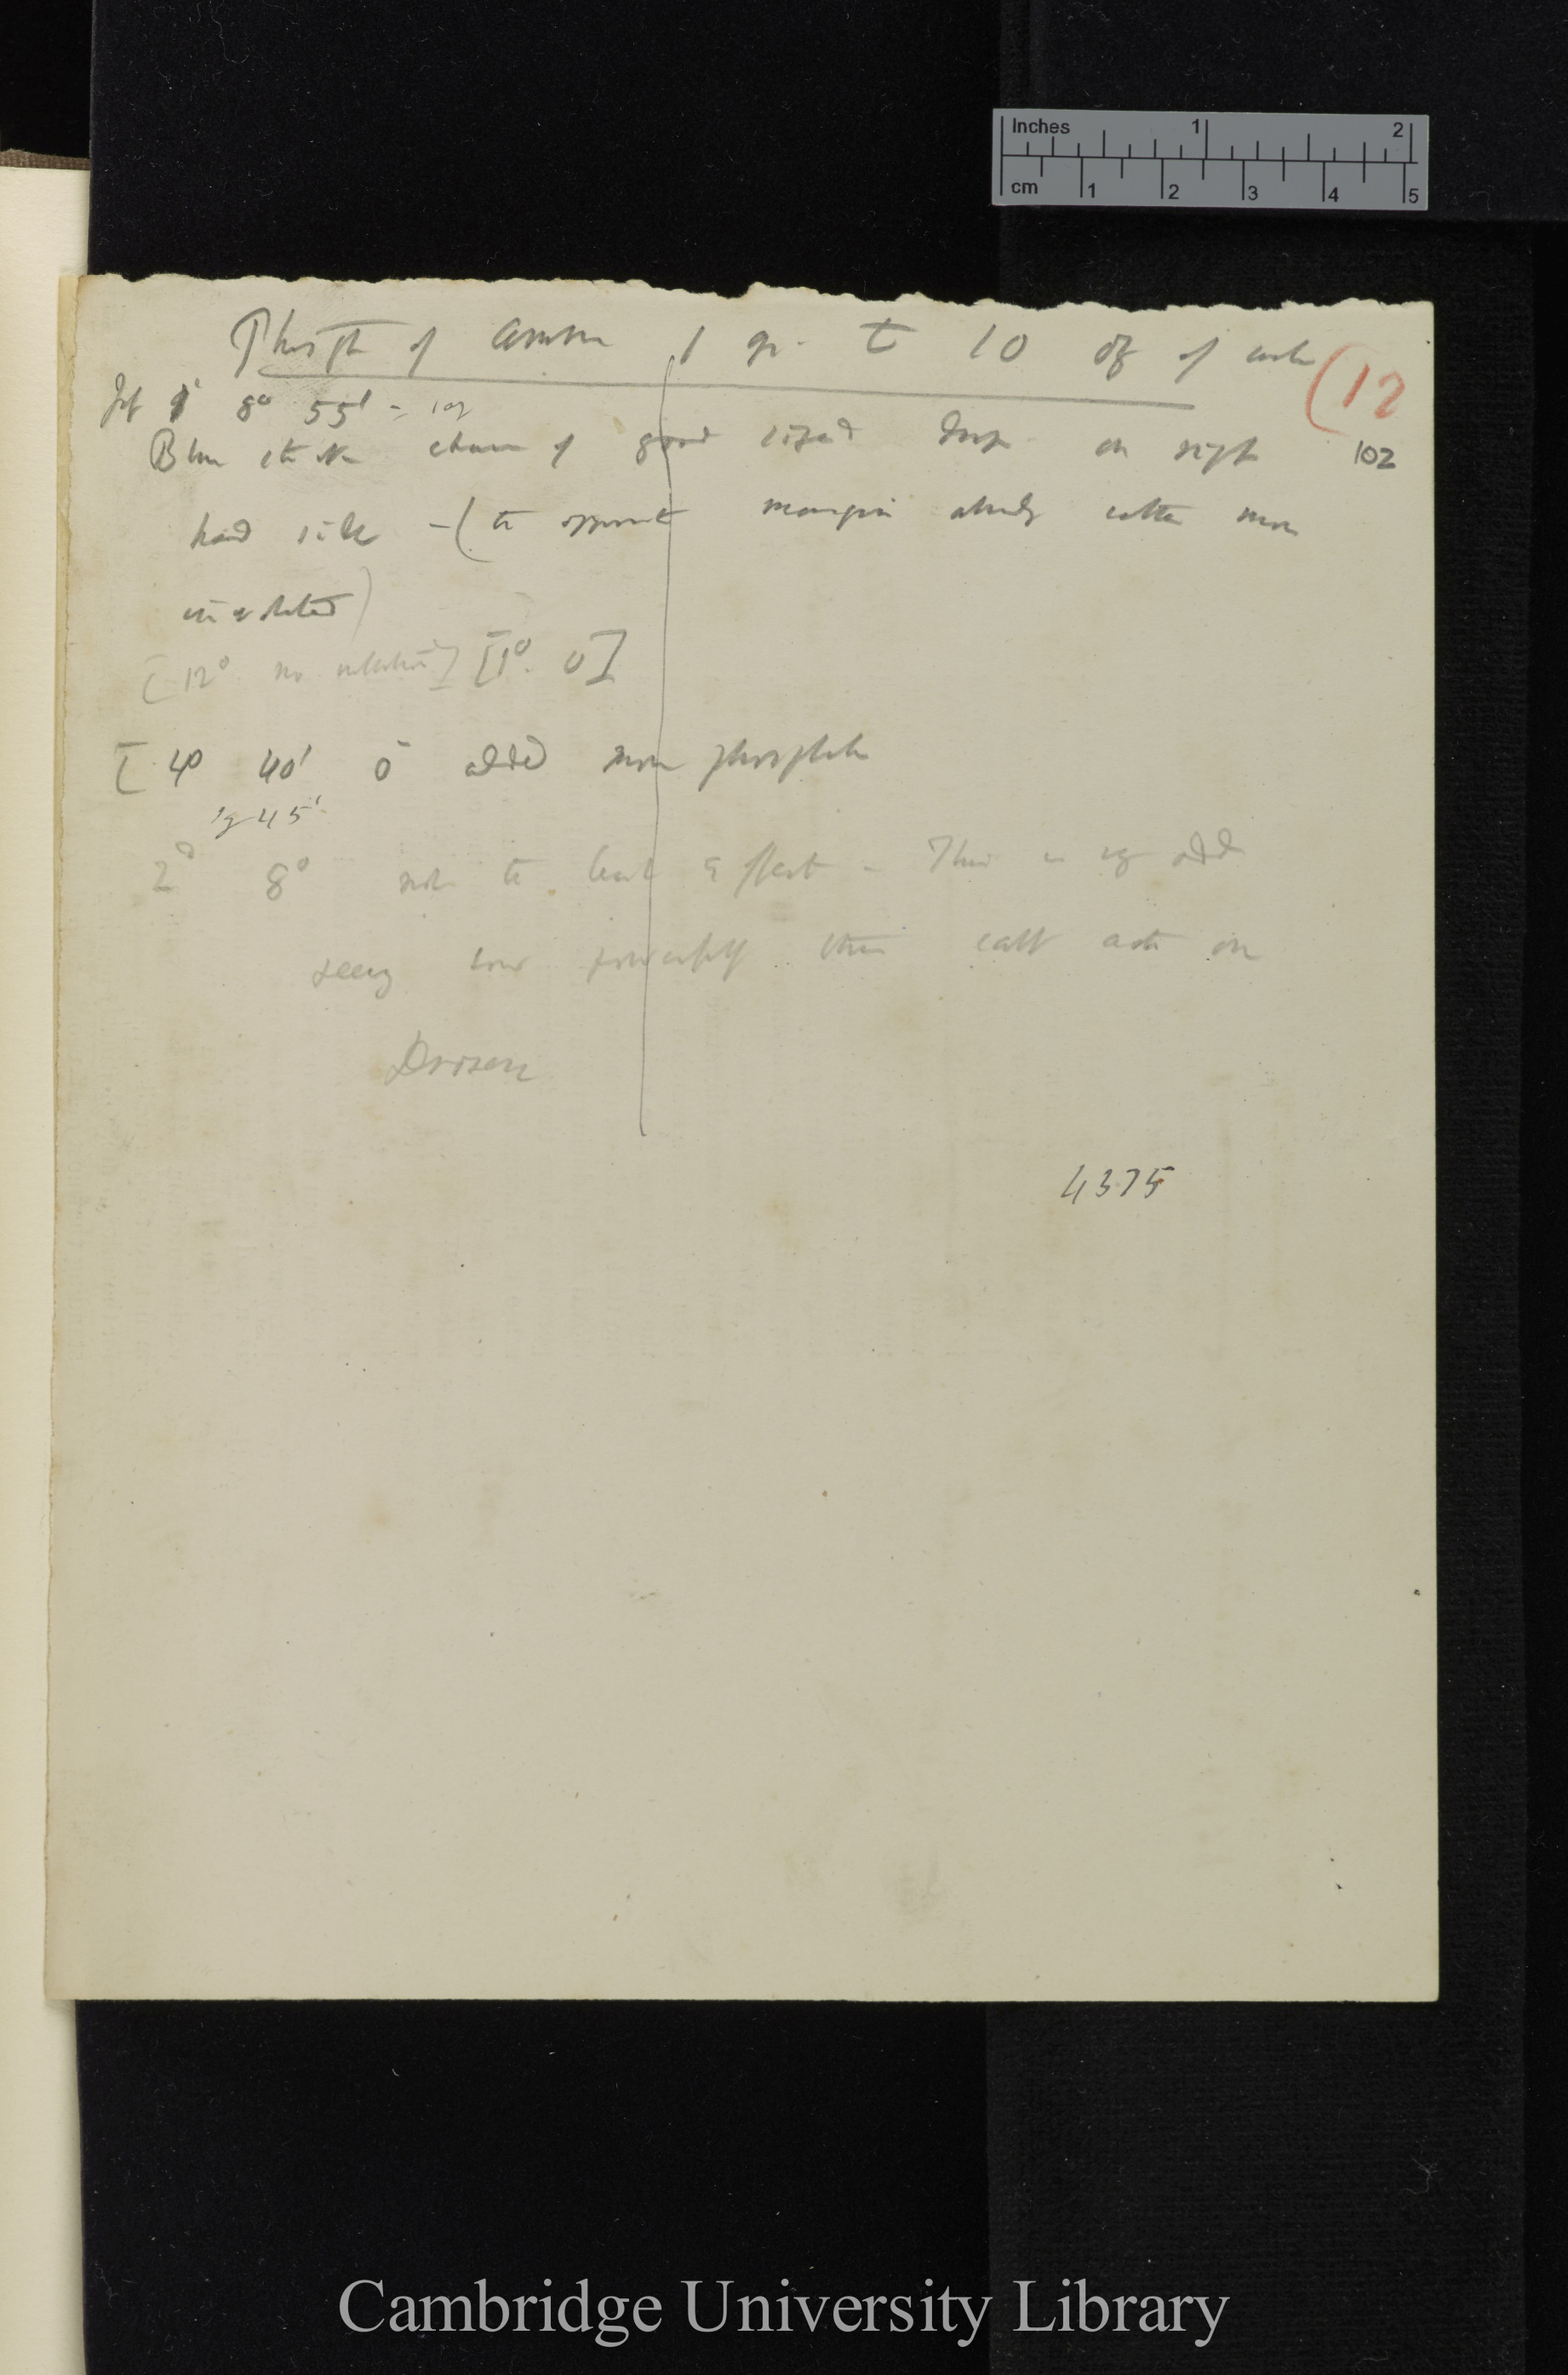 Inches 1 2
cm 1 2 3 4 5
Phosph of Ammon 1 gr. to 10 oz of water
(12
8° 55' = 102
Blue stick of good sized drop on right
102
hand side – (the opposite margin already rather more
inflected)
[12° no inflection] [1° 0]
[4° 40' 0 added more phosphate
45'
2° 8° not the least effect – This is very odd
seeing how powerfully this salt acts on
Drosera
4375
Cambridge University Library